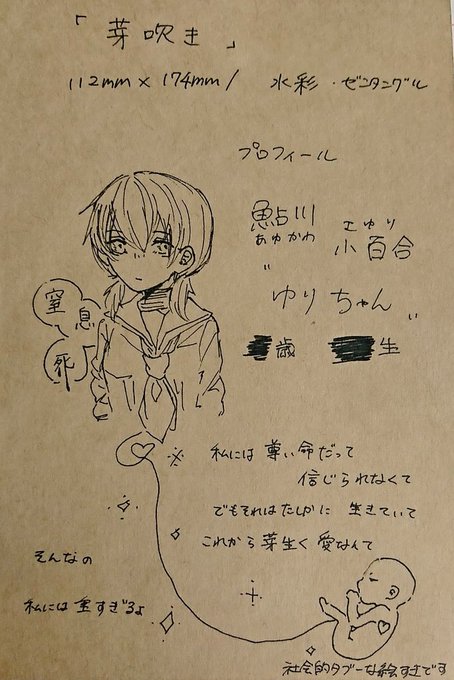 「芽吹き」
112mm × 174mm / 水彩・ゼンタングル
プロフィール
鮎川 小百合
あゆかわ さゆり
"ゆりちゃん"
歳 生
窒息死
私には尊い命だって
信じられなくて
でもそれはたしかに 生きていて
これから芽生く愛なんて
そんなの
私には重すぎるよ
社会的タブーな絵すきです